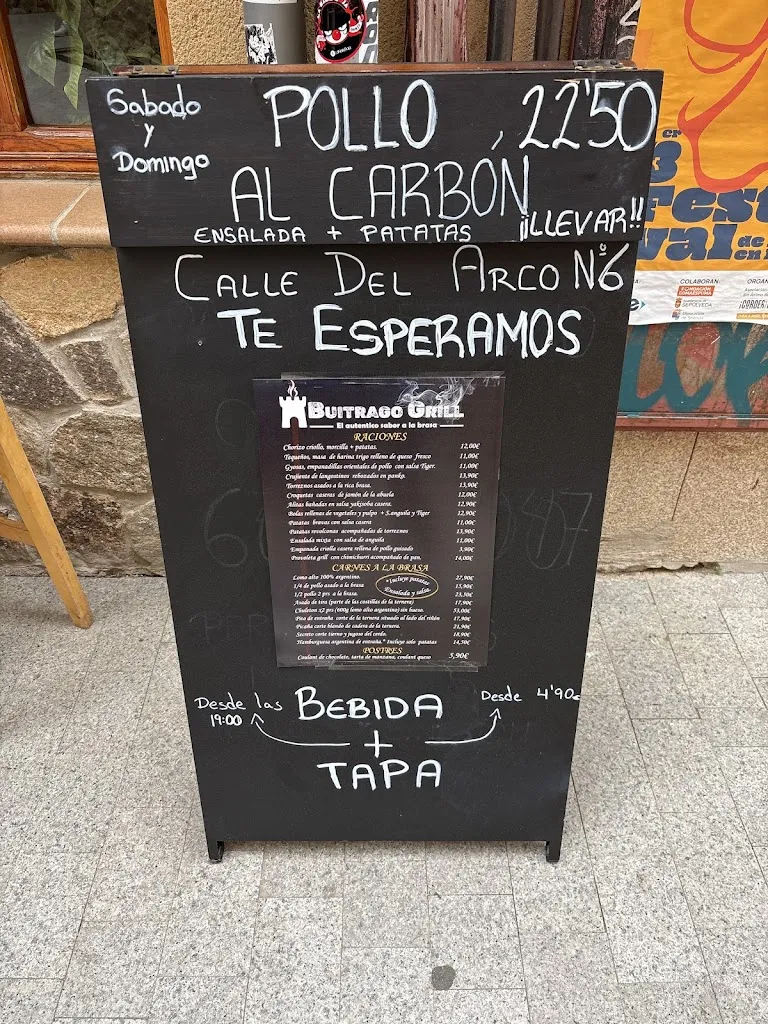 Sabado
y
Domingo
POLLO , 22'50
AL CARBÓN
ENSALADA + PATATAS ¡¡LLEVAR!!
CALLE DEL ARCO Nº6
TE ESPERAMOS
BUITRAGO GRILL
El autentico sabor a la brasa
RACIONES
Chorizo criollo, morcilla + patatas. 12,00€
Tequeños, masa de harina trigo relleno de queso fresco 11,00€
Gyosas, empanadillas orientales de pollo con salsa Tiger. 11,00€
Crujiente de langostinos rebozados en panko. 13,90€
Torreznos asados a la rica brasa. 13,90€
Croquetas caseras de jamón de la abuela 12,00€
Alitas bañadas en salsa yakisoba casera. 12,90€
Bolas rellenas de vegetales y pulpo + S.anguila y Tiger 12,90€
Patatas bravas con salsa casera 11,00€
Patatas revolconas acompañadas de torreznos 13,90€
Ensalada mixta con salsa de anguila 11,00€
Empanada criolla casera rellena de pollo guisado 3,90€
Provoleta grill con chimichurri acompañado de pan. 14,00€
CARNES A LA BRASA
Lomo alto 100% argentino. 27,90€
1/4 de pollo asado a la brasa 15,90€
1/2 pollo 2 prs a la brasa. 23,50€
*Incluye patatas
Ensalada y salsa.
Asado de tira (parte de las costillas de la ternera) 17,90€
Chuleton x2 prs (600g lomo alto argentino) sin hueso. 53,00€
Pito de entraña corte de la ternera situado al lado del riñón 17,90€
Picaña corte blando de cadera de la ternera. 21,90€
Secreto corte tierno y jugoso del cerdo. 18,90€
Hamburguesa argentina de entraña.* Incluye solo patatas 14,50€
POSTRES
Coulant de chocolate, tarta de manzana, coulant queso 5,90€
Desde las
19:00
BEBIDA
Desde 4'90€
+
TAPA
er
3
Fest
val de
en
COLABORAN
ORGAN
SEPÚLVEDA